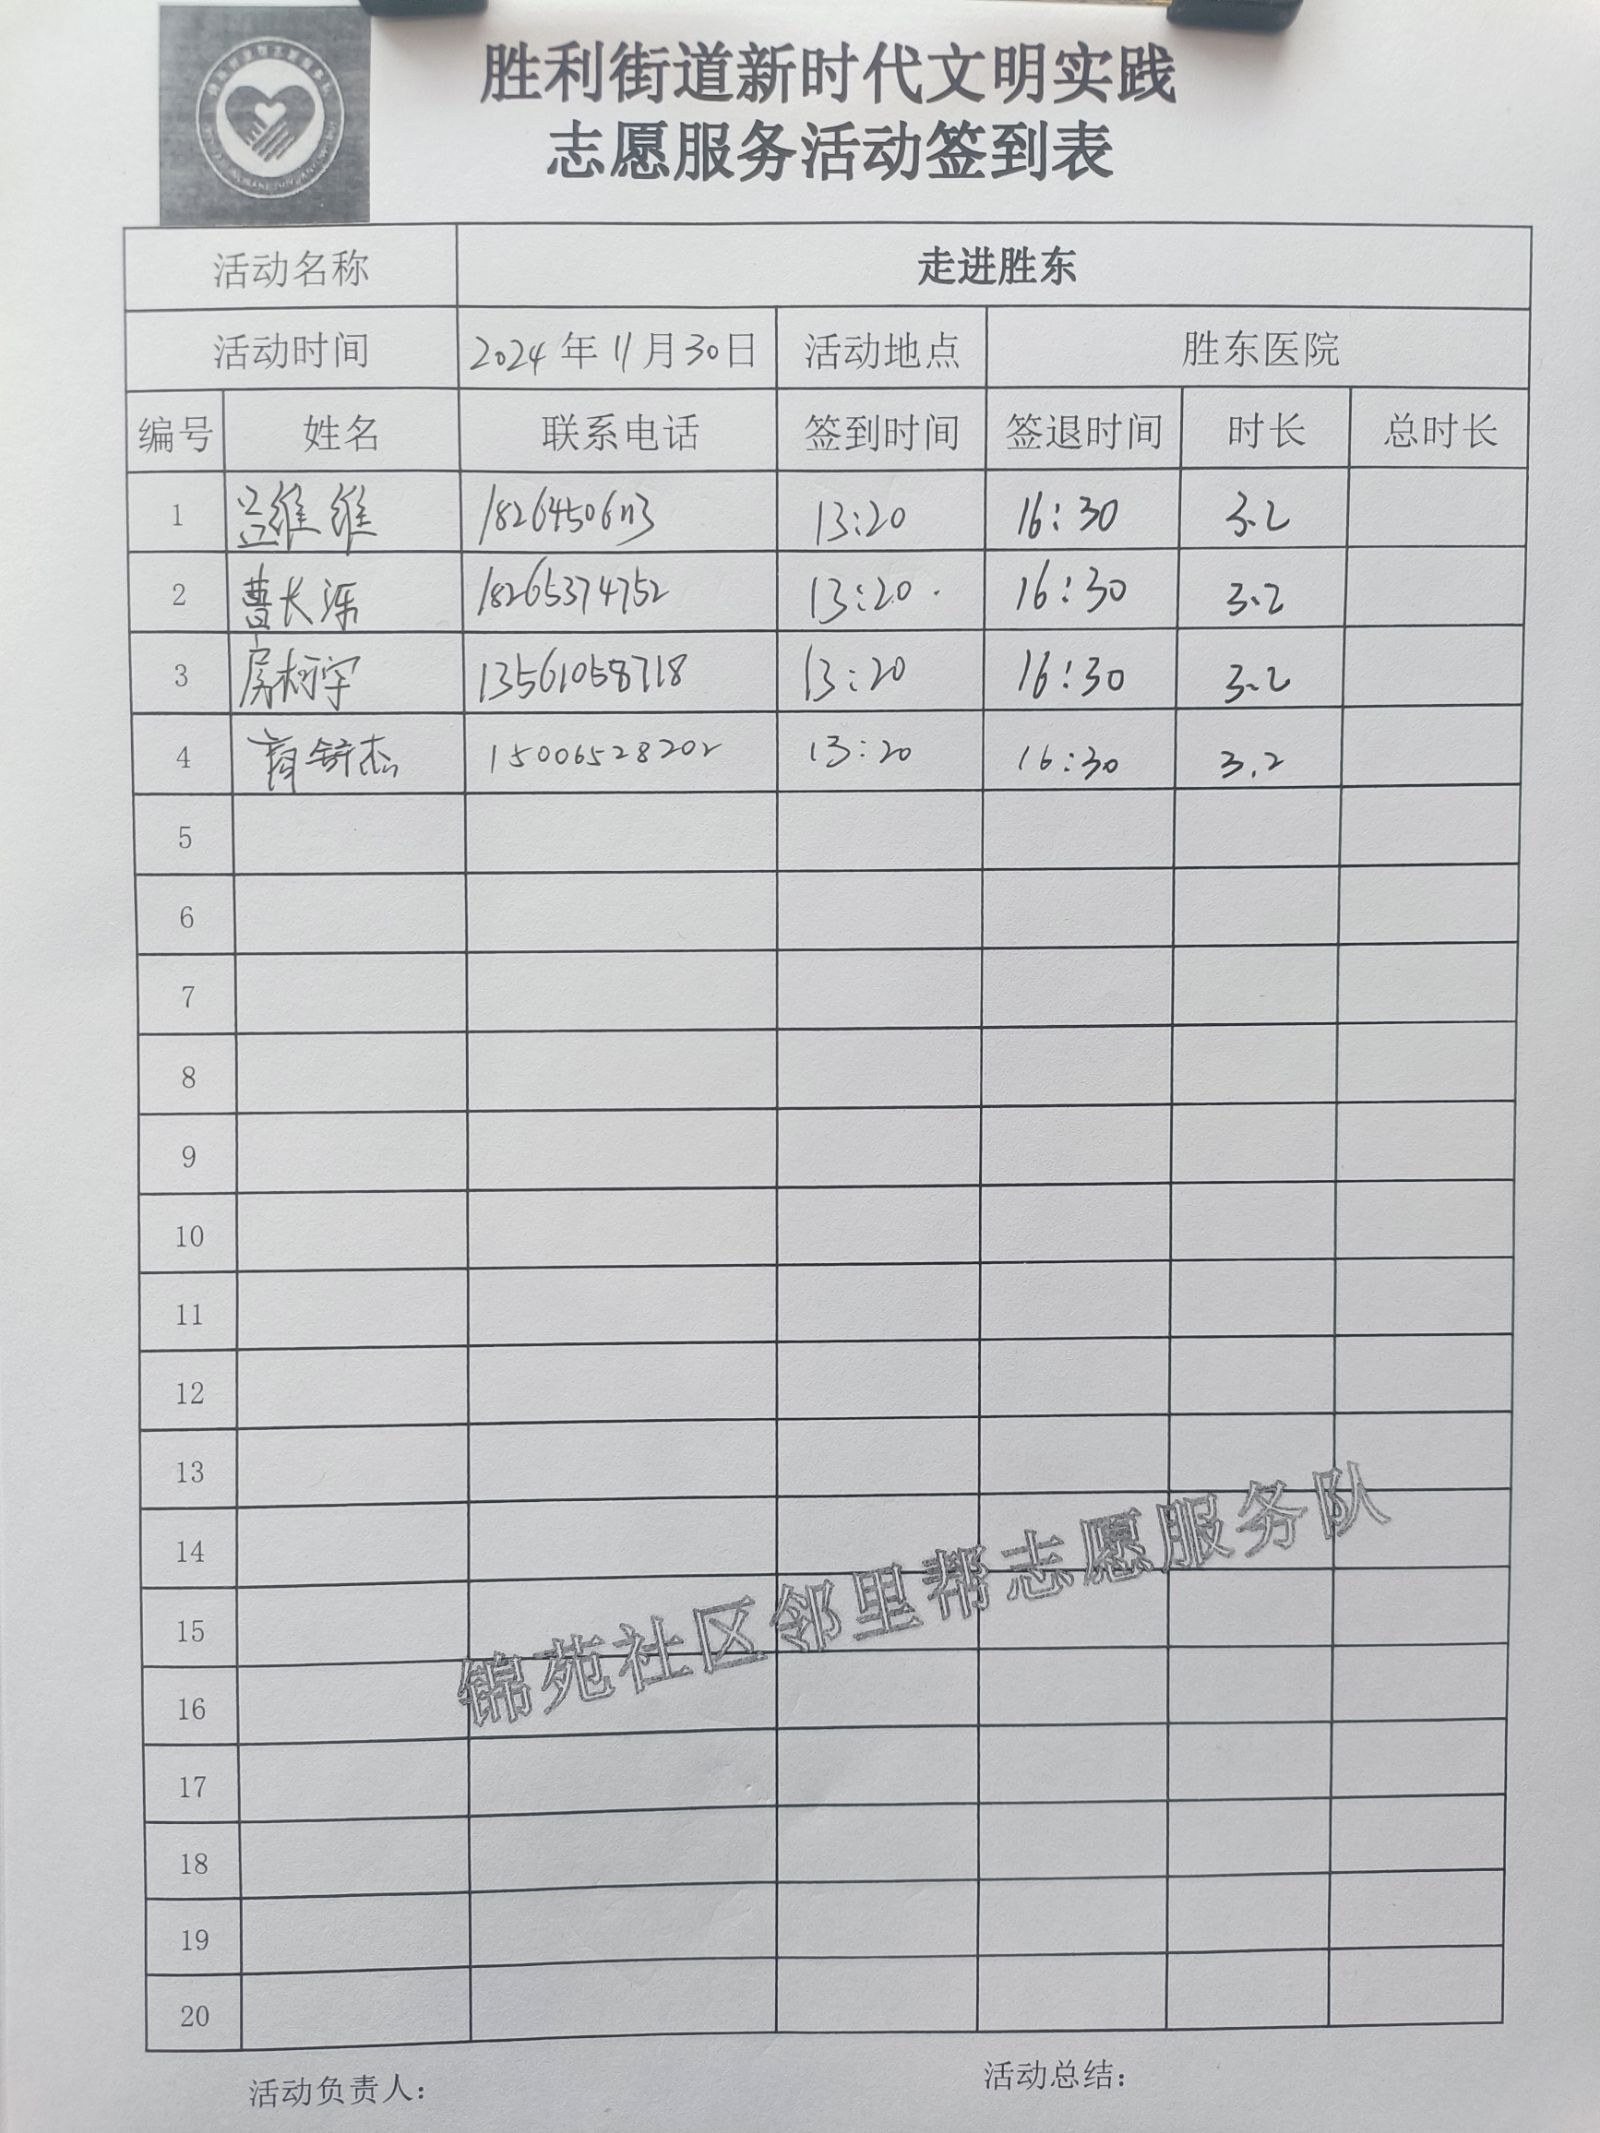 胜利街道新时代文明实践
志愿服务活动签到表
活动名称 走进胜东
活动时间 2024年11月30日 活动地点 胜东医院
编号 姓名 联系电话 签到时间 签退时间 时长 总时长
1 维维 13:20 16:30 3.2
2 曹长泺 18265374752 13:20 16:30 3.2
3 房柯宇 13561058718 13:20 16:30 3.2
4 杰 15006528202 13:20 16:30 3.2
5
6
7
8
9
10
11
12
13
14
15
16
17
18
19
20
锦苑社区邻里帮志愿服务队
活动负责人： 活动总结：